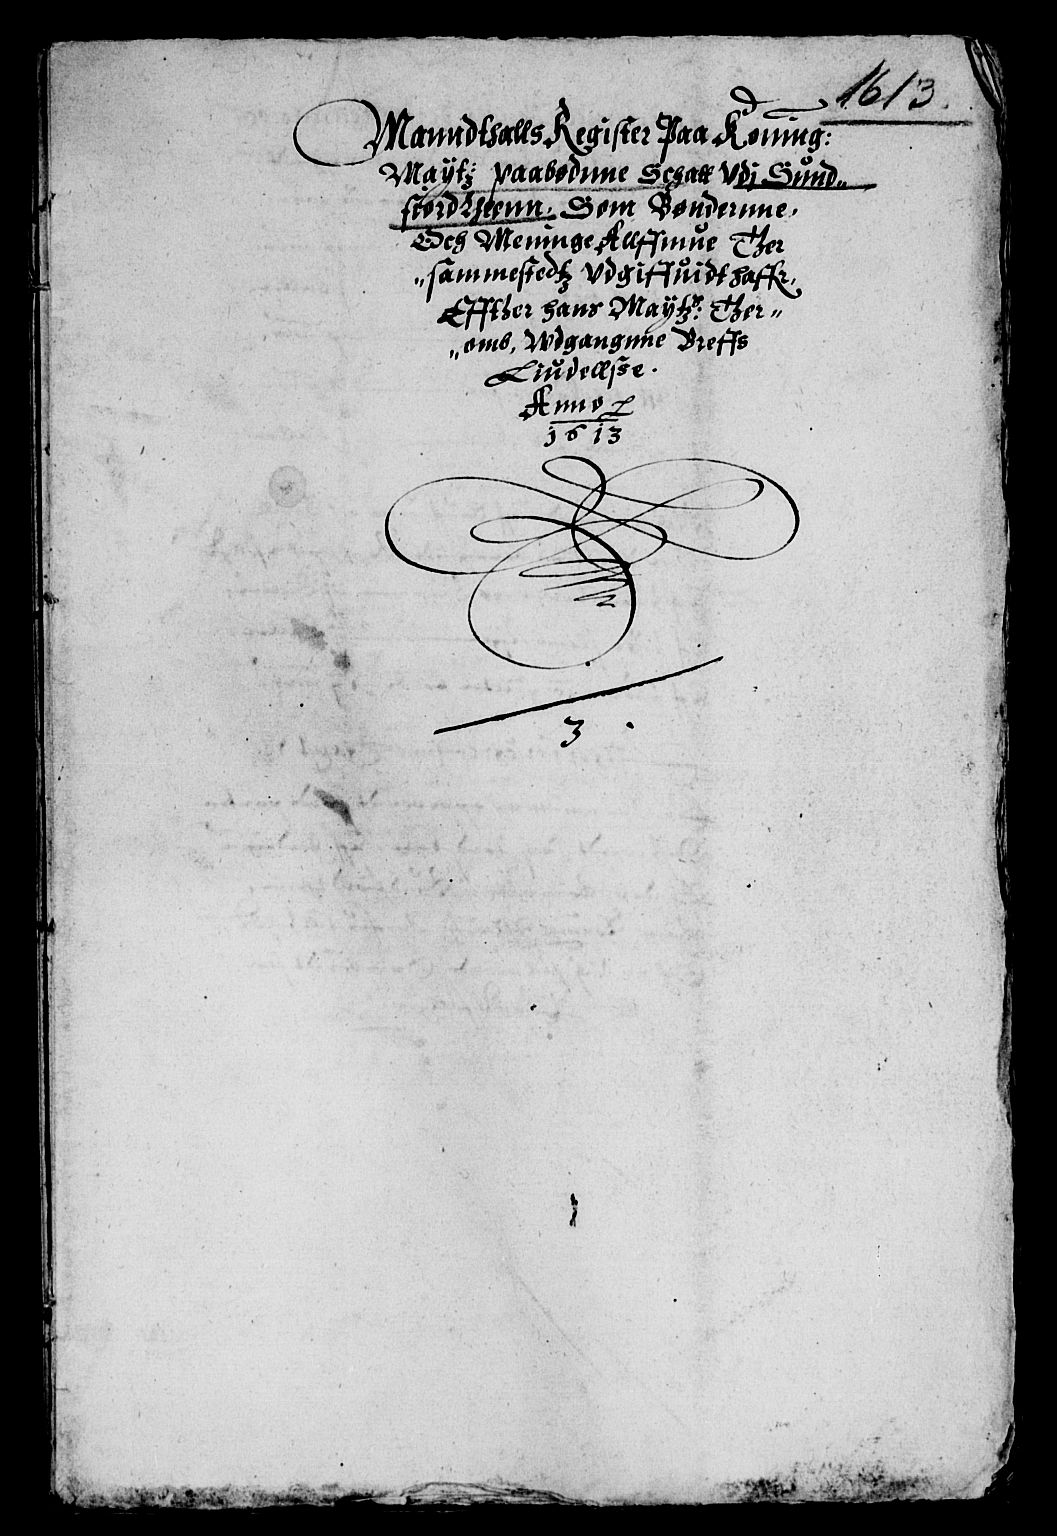 1613.
Manndthalls Register Paa Koning:
Maÿtz paabødnne Schatt Vdj Sŭnd„
fiord Lenn, Som Bøndernne,
Och Meninge Allffmŭe Ther
„sammestedtz Vdgiffŭidt haffr,
Effther hans Maÿtz: Ther„
„oms, Wdgangnne Breffs
Liudellsse.
Anno
1613
3